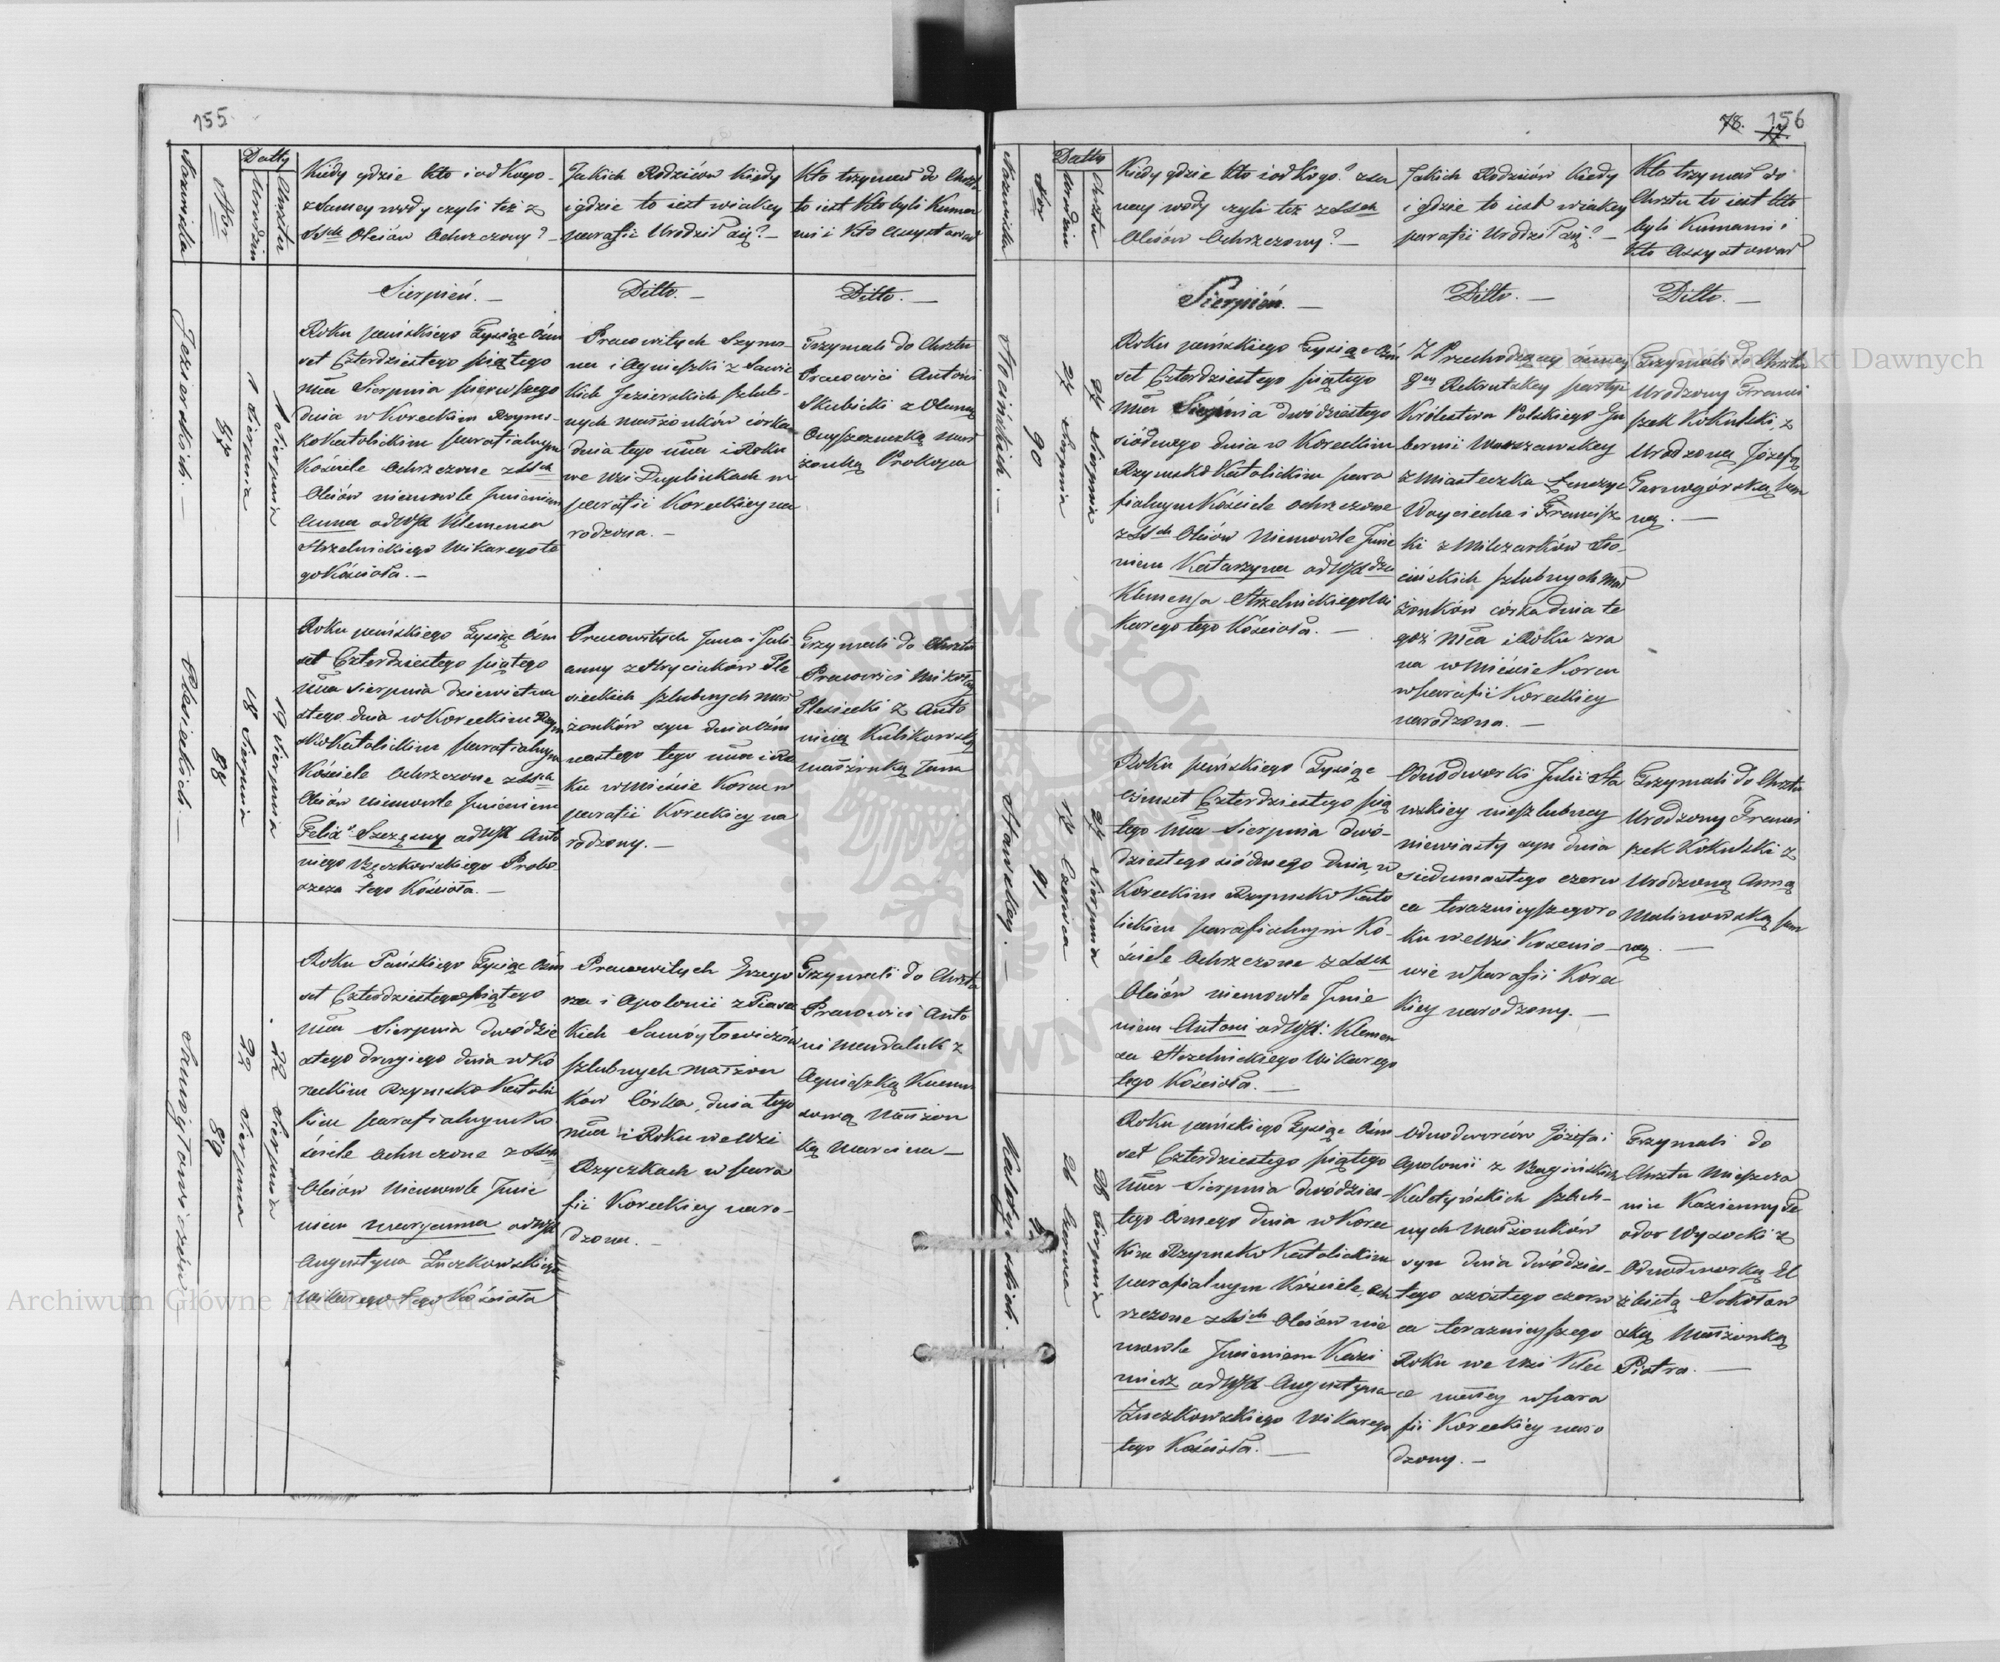 155.
Nazwiska
Nor
Datty
Urodzin
Chrztu
Kiedy gdzie kto i od Kogo
z samey wody czyli też z
SSch Oleiów Ochrzczony? —
Jakich Rodziców Kiedy
i gdzie to iest wiakiey
parafii Urodził się? —
Kto trzymał do Chrztu
to iest Kto byli Kuma
mi i Kto assystował
Sierpień. —
Ditto. —
Ditto. —
Jezierskich. —
87
1 Sierpnia
1 Sierpnia
Roku pańskiego Tysiąc Ośm
set Czterdziestego piątego
Mca Sierpnia pierwszego
dnia w Koreckim Rzyms-
ko Katolickim parafialnym
Kościele Ochrzczone z SSch
Oleiów niemowle Jmieniem
Anna od WJX Klemensa
Strzelnickiego Wikarego te
go Kościoła. —
Pracowitych Szymo-
na i Agnieszki z Sawic
kich Jezierskich szlub-
nych małżonków córka
dnia tego Mca i Roku
we Wsi Duplinkach w
parafii Koreckiey na
rodzona. —
Trzymali do Chrztu
Pracowici Antoni
Skubicki z Oleną
mał
żonką Prokopa
Plesieckich. —
88
18 Sierpnia
19 Sierpnia
Roku pańskiego Tysiąc Ośm
set Czterdziestego piątego
Mca Sierpnia dziewiętna
stego dnia w Koreckim Rzym
sko Katolickim parafialnym
Kościele Ochrzczone z SSch
Oleiów niemowle Jmieniem
Felix Szczęsny od WJX Anto
niego Bęczkowskiego Probo
szcza tego Kościoła. —
Pracowitych Jana i Juli
anny z Hryciuków Ple
sieckich szlubnych mał
żonków syn dnia Ośm
nastego tego Mca i Ro
ku w Mieście Korcu w
parafii Koreckiey na
rodzony. —
Trzymali do Chrztu
Pracowici Mikołay
Plesiecki z Anto
niną Kulikowską
małżonką Jana
Samoytowiczów
89
22 Sierpnia
22 Sierpnia
Roku Pańskiego Tysiąc Ośm
set Czterdziestego piątego
Mca Sierpnia dwódzie
stego drugiego dnia w Ko
reckim Rzymsko Katolic
kim parafialnym Ko
ściele Ochrzczone z SSch
Oleiów Niemowle Jmie
niem Maryanna od WJX
Augustyna Żuczkowskiego
Wikarego tego Kościoła
Pracowitych Grzego
rza i Apolonii z
kich Samoytowiczów
szlubnych małżon
ków Córka, dnia tego
Mca i Roku we Wsi
Rzyczkach w para
fii Koreckiey naro-
dzona. —
Trzymali do Chrztu
Pracowici Anto
ni Mendaluk z
Agnieszką
małżon
ką Marcina —
78. 156
Nazwiska
Nor
Datty
Urodzin
Chrztu
Kiedy gdzie kto i od Kogo? z sa
mey wody czyli też z SSch
Oleiów Ochrzczony? —
Jakich Rodziców Kiedy
i gdzie to iest wiakiey
parafii Urodził się? —
Kto trzymał do
Chrztu to iest kto
byli Kumami i
Kto Assystował
Sierpień. —
Ditto. —
Ditto. —
90
27 Sierpnia
27 Sierpnia
Roku pańskiego Tysiąc Ośm
set Czterdziestego piątego
Mca Sierpnia dwódziestego
siódmego dnia w Koreckim
Rzymsko Katolickim para
fialnym Kościele Ochrzczone
z SSch Oleiów Niemowle Jmie
niem Katarzyna od WJXdza
Klemensa Strzelnickiego Wi
karego tego Kościoła. —
Z Przechodzącey ósmey
8ey Rekrutskey partyi
Królestwa Polskiego Gu
bernii Warszawskey
z Miasteczka Łęczyc
Woyciecha i Francisz
ki z Milczarków
cińskich szlubnych mał
żonków córka dnia te
goż Mca i Roku zra
na w Mieście Korcu
w parafii Koreckiey
narodzona. —
Trzymali do Chrztu
Urodzony Franci
szek Kokulski z
Urodzoną Józefą
Tarnogórską pan
ną. —
Stawskiey. —
91
17 Czerwca
27 Sierpnia
Roku pańskiego Tysiąc
Ośmset Czterdziestego pią
tego Mca Sierpnia dwó-
dziestego siódmego dnia, w
Koreckim Rzymsko Kato
lickim parafialnym Ko-
ściele Ochrzczone z SSch
Oleiów niemowle Jmie
niem Antoni od WJX: Klemen
sa Strzelnickiego Wikarego
tego Kościoła. —
Odnodworki Julii Sta
wskiey nieszlubney
niewiasty syn dnia
siedemnastego czerw
ca teraznieyszego ro
ku we Wsi
wie w parafii Korec
kiey narodzony. —
Trzymali do Chrztu
Urodzony Franci
szek Kokulski z
Urodzoną Anną
Malinowską pan
ną. —
92
26 Czerwca
28 Sierpnia
Roku pańskiego Tysiąc Ośm
set Czterdziestego piątego
Mca Sierpnia dwódzies-
tego Ósmego dnia w Korec
kim Rzymsko Katolickim
parafialnym Kościele, Och
rzczone z SSch Oleiów nie
mowle Jmieniem Kazi
mierz od WJX Augustyna
Żuczkowskiego Wikarego
tego Kościoła. —
Odnodworców Józefa i
Apolonii z Bagińskich
szlub-
nych małżonków
syn dnia dwódzies-
tego szóstego czerw
ca teraznieyszego
Roku we Wsi Klec
ce małey w para
fii Koreckiey naro
dzony. —
Trzymali do
Chrztu Mieszcza
nin Kazienny Te
odor Wysocki z
Odnodworką El
żbietą Sokołow
ską małżonką
Piotra. —
Archiwum Główne Akt Dawnych
Archiwum Główne Akt Dawnych